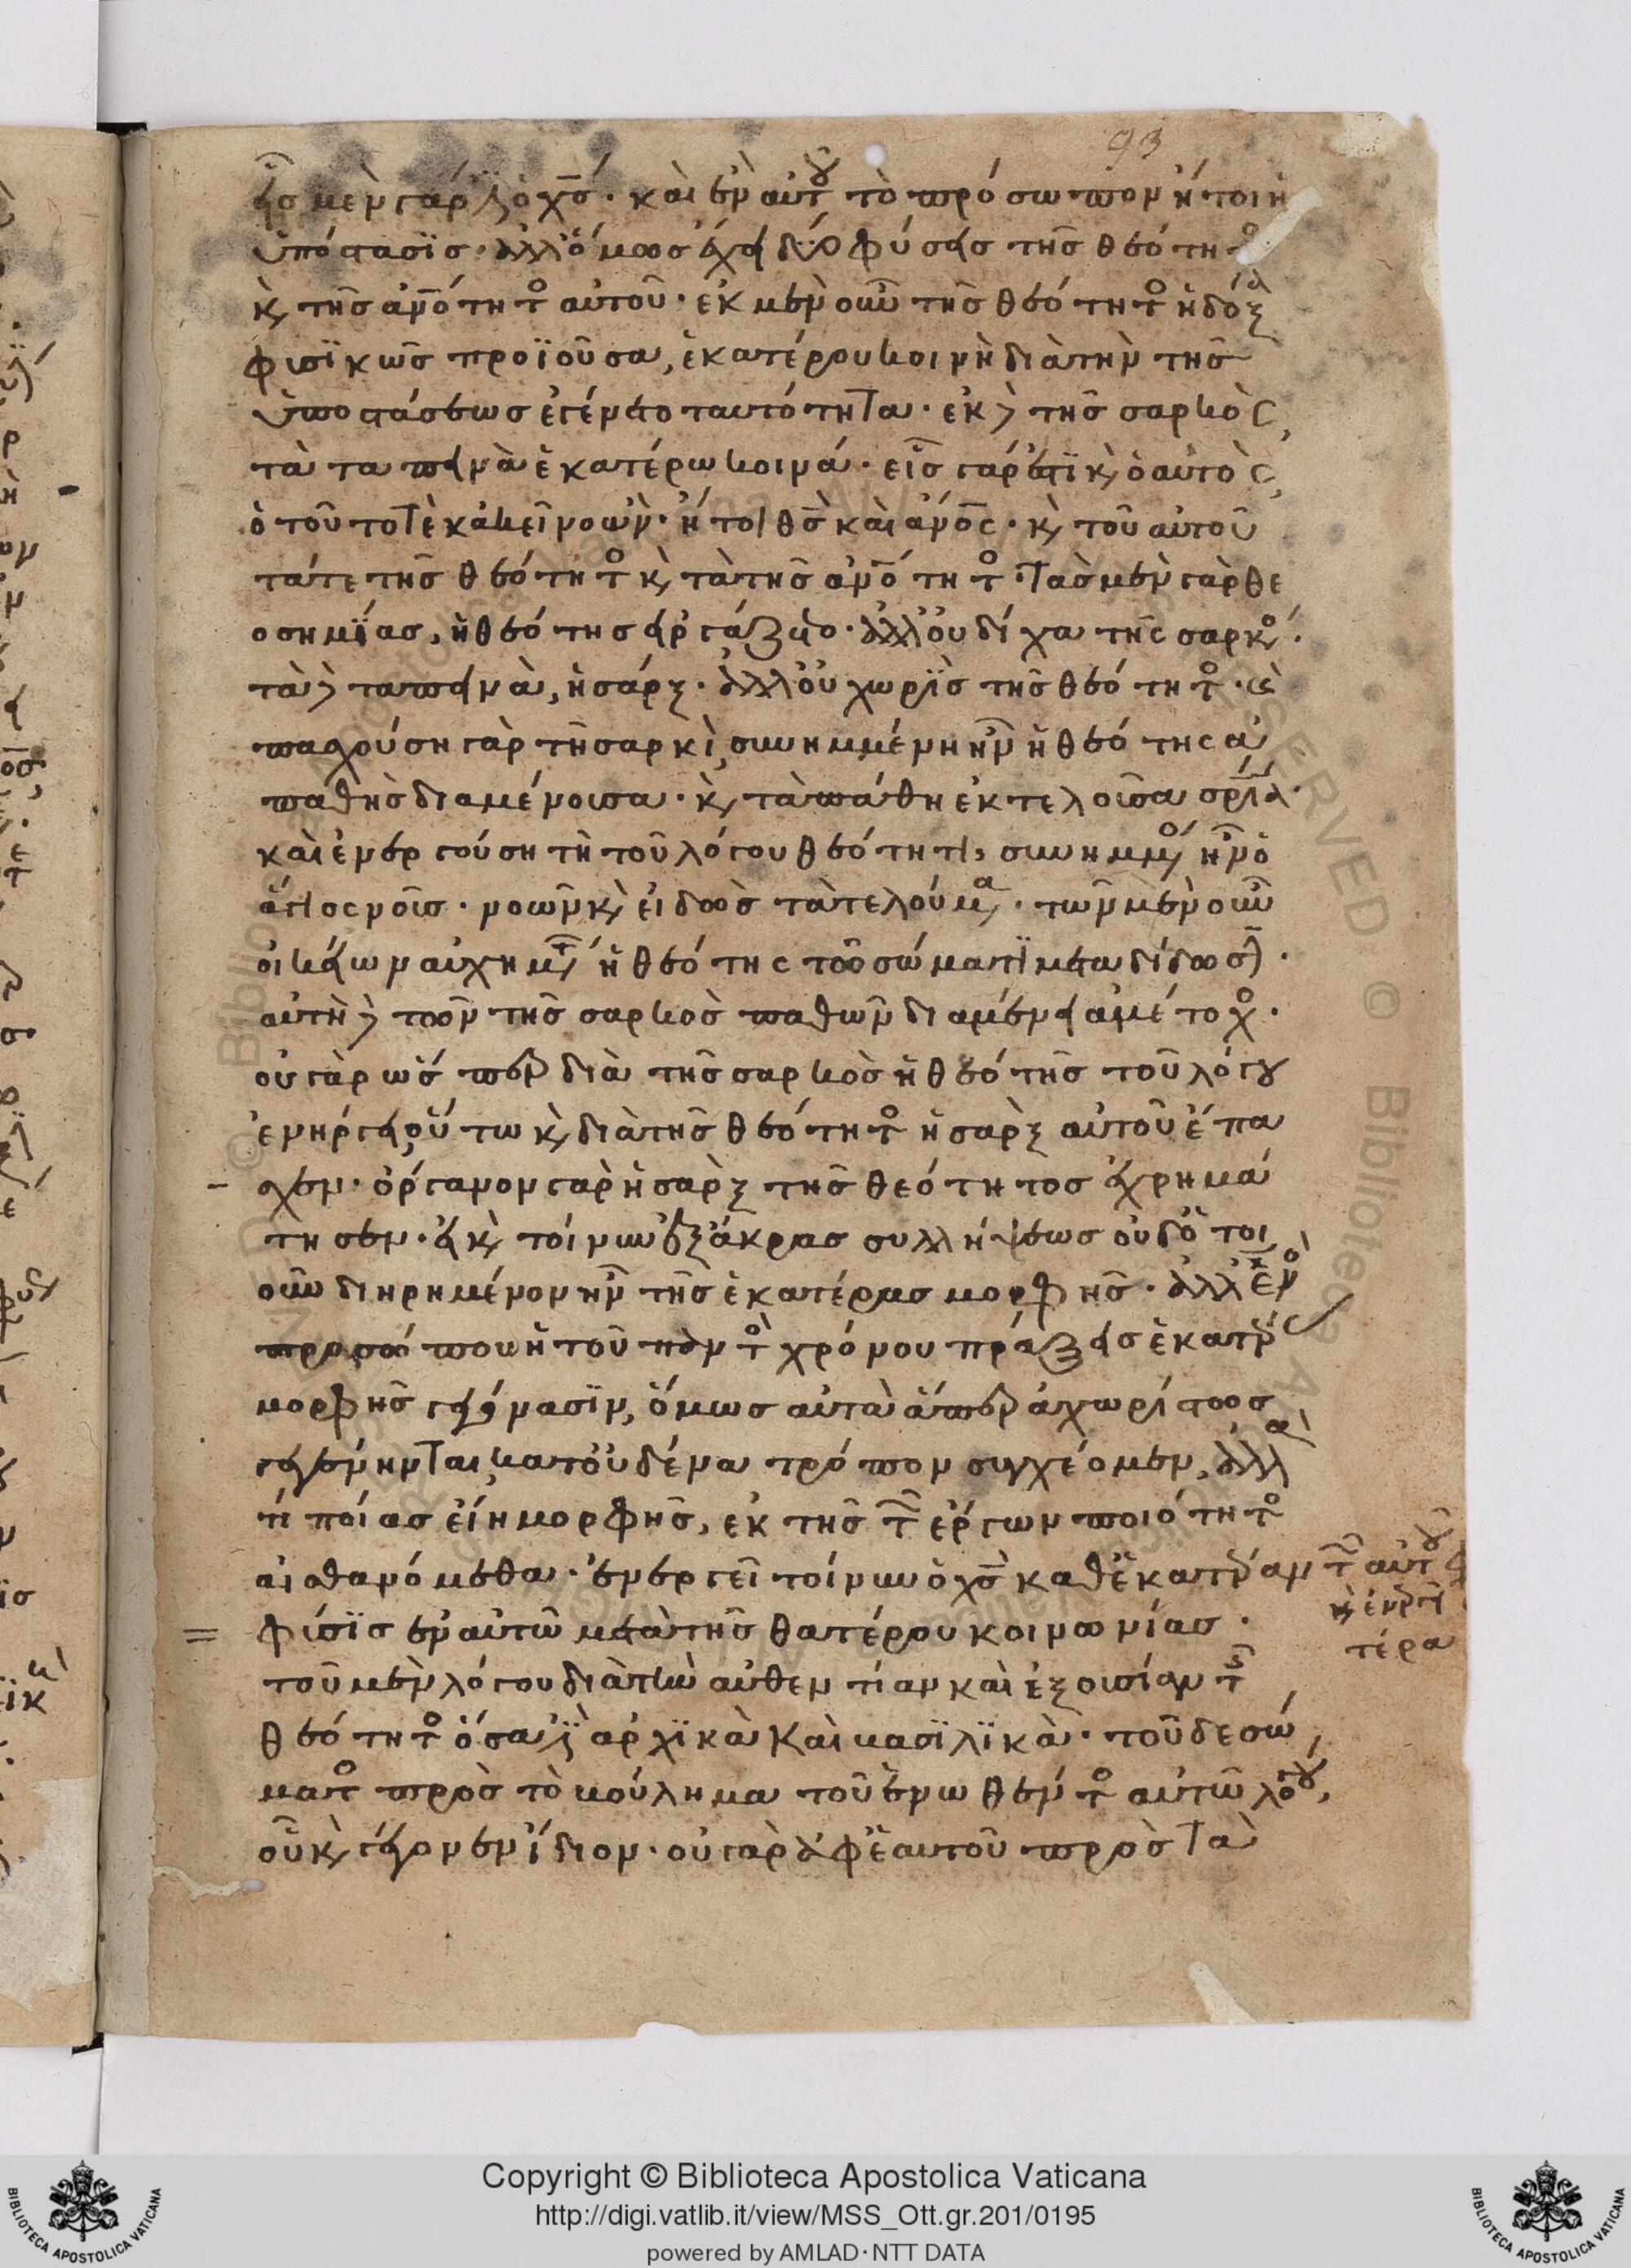 93
εἷς μὲν γάρ ἐστιν ὁ χς̄· καὶ ἓν αὐτοῦ τὸ πρόσωπον ἤτοι ἡ
ὑπόστασϊς· ἀλλ' ὅμως ἔχει δύο φύσεις τῆς θεότητος
κ̀ τῆς ἀνο̄τητος αὐτοῦ· ἐκ μὲν οὖν τῆς θεότητος ἡ δόξα
φυσϊκῶς προϊοῦσα, ἑκατέρου κοινὴ διὰ τὴν τῆς
ὑποστάσεως ἐγένετο ταυτότητα· ἐκ δὲ τῆς σαρκὸς
τὰ ταπεινὰ ἑκατέρω κοινά· εἷς γάρ ἐστϊ κ̀ ὁ αὐτὸς
ὁ τοῦτο τὲ κἀκεῖνο ὤν· ἤτοι θς̄ καὶ ἄνος̄· κ̀ τοῦ αὐτοῦ
τά τε τῆς θεότητος κ̀ τὰ τῆς ἀνο̄τητος· τὰς μὲν γὰρ θε
οσημίας, ἡ θεότης εἰργάζετο· ἀλλ' οὐ δίχα τῆς σαρκός·
τὰ δὲ ταπεινὰ, ἡ σάρξ· ἀλλ' οὐ χωρῒς τῆς θεότητος· κὲ
πασχούση γὰρ τῆ σαρκὶ, συνημμένη ἦν ἡ θεότης ἀ
παθὴς διαμένουσα· κ̀ τὰ πάθη ἐκτελοῦσα σρ̄ια·
καὶ ἐνεργούση τῆ τοῦ λόγου θεότητι, συνημμένος ἦν ὁ
ἅγιος νοῦς· νοῶν κ̀ εἰδὼς τὰ τελούμενα· τῶν μὲν οὖν
οἰκείων αὐχημάτων ἡ θεότης τῶ σώματϊ μεταδίδωσιν·
αὐτὴ δὲ τῶν τῆς σαρκὸς παθῶν διαμένει ἀμέτοχος·
οὐ γὰρ ὥσπερ διὰ τῆς σαρκὸς ἡ θεότης τοῦ λόγου
ἐνήργει, οὕτω κ̀ διὰ τῆς θεότητος ἡ σὰρξ αὐτοῦ ἔπα
σχεν· ὄργανον γὰρ ἡ σὰρξ τῆς θεότητος ἐχρημά
τησεν· εἰ κ̀ τοίνυν ἐξ ἄκρας συλλήψεως οὐδ' ὁτι
οῦν διηρημένον ἦν τῆς ἑκατέρας μορφῆς· ἀλλ' ἑνὸς
προσώπου ἡ τοῦ παντὸς χρόνου πράξεις ἑκατέρας
μορφῆς γεγόνασϊν, ὅμως αὐτὰ ἅπερ ἀχωρίστως
γεγένηνται, κατ' οὐδένα τρόπον συγχέομεν, ἀλλὰ
τί ποίας εἴη μορφῆς, ἐκ τῆς τῶν ἔργων ποιότητος
αἰσθανόμεθα· ἐνεργεῖ τοίνυν ὁ χς̄ καθ' ἑκατέραν τῶν αὐτοῦ φ
φύσϊς ἐν αὐτῶ μετὰ τῆς θατέρου κοινωνίας·
κ̀ ἐνεργεῖ
τέρα
τοῦ μὲν λόγου διὰ τὴν αὐθεντίαν καὶ ἐξουσίαν τῆς
θεότητος ὅσα ἐστὶν ἀρχϊκὰ καὶ βασϊλϊκὰ· τοῦ δὲ σώ
ματος πρὸς τὸ βούλημα τοῦ ἑνωθέντος αὐτῶ λόγου,
οὗ κ̀ γέγονεν ἴδιον· οὐ γὰρ ἀφ' ἑαυτοῦ πρὸς τὰ
Copyright © Biblioteca Apostolica Vaticana
http://digi.vatlib.it/view/MSS_Ott.gr.201/0195
powered by AMLAD·NTT DATA